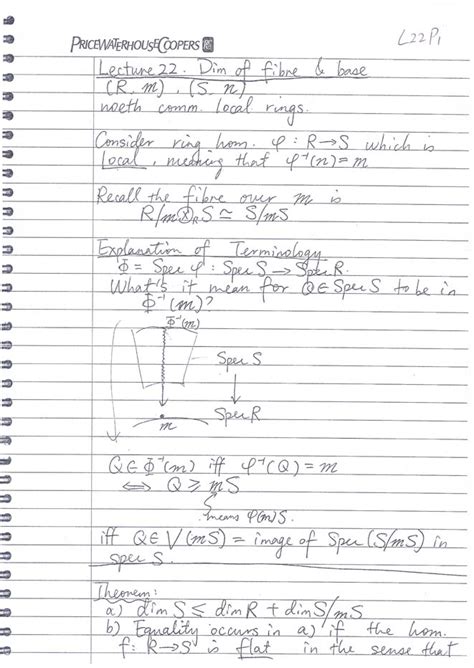 PRICEWATERHOUSECOOPERS
L22P1
Lecture 22. Dim of fibre & base
(R, m), (S, n)
noeth comm. local rings.
Consider ring hom. φ : R→S which is
local, meaning that φ⁻¹(n) = m
Recall the fibre over m is
R/m⊗_R S ≃ S/mS
Explanation of Terminology
Φ = Spec φ : Spec S → Spec R.
What's it mean for Q∈Spec S to be in
Φ⁻¹(m)?
Φ⁻¹(m)
Spec S
↓
Spec R
m
Q∈Φ⁻¹(m) iff φ⁻¹(Q) = m
⟺ Q ≥ mS
means φ(m)S.
iff Q∈V(mS) = image of Spec(S/mS) in
Spec S.
Theorem:
a) dim S ≤ dim R + dim S/mS
b) Equality occurs in a) if the hom.
f: R→S is flat in the sense that